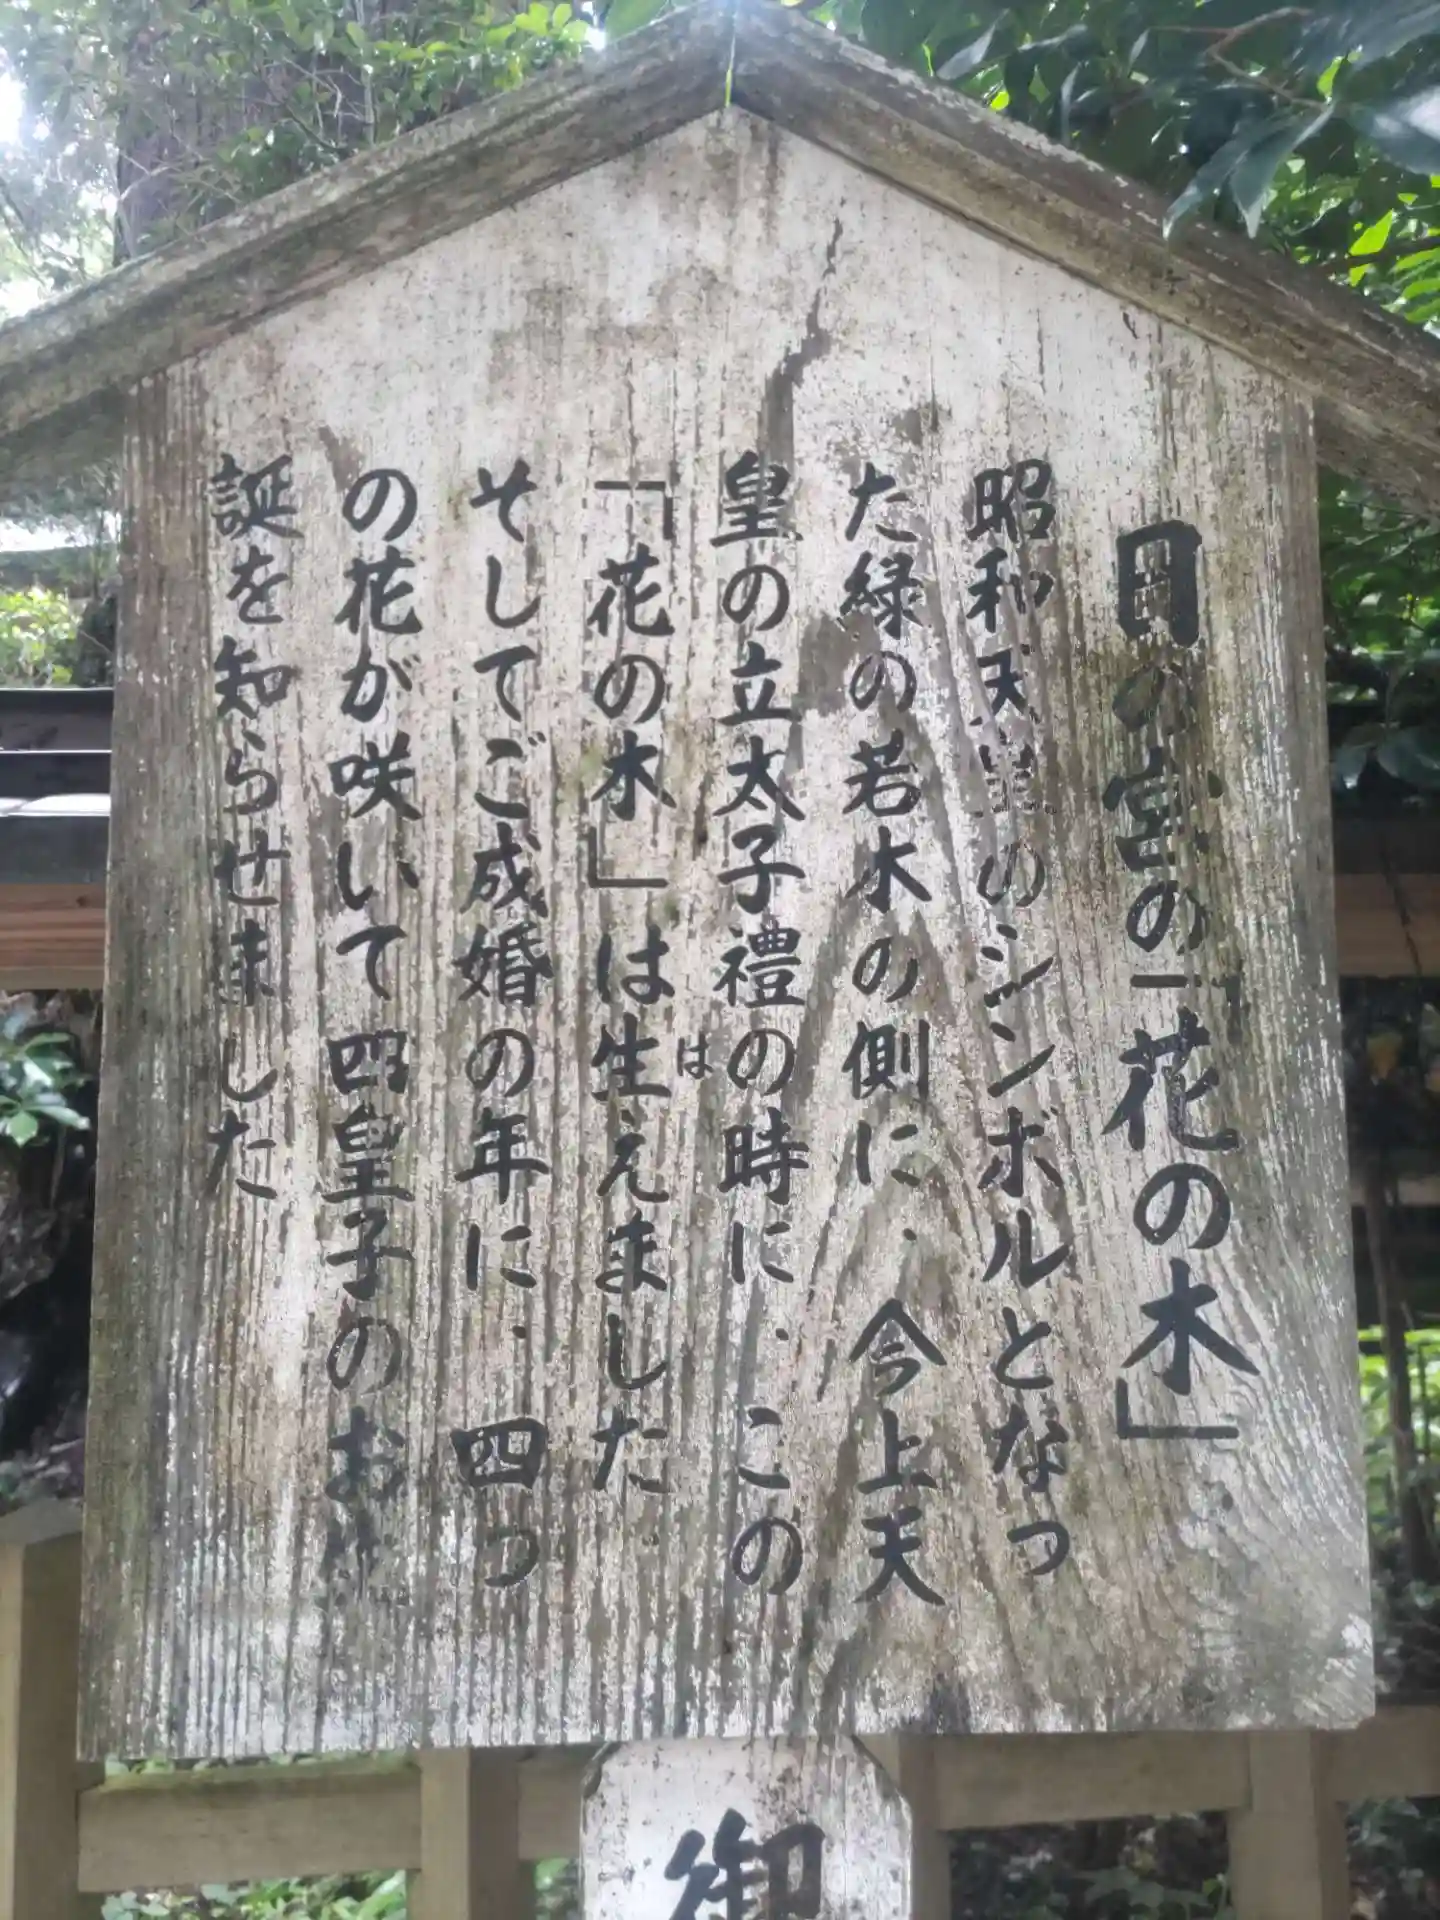 日の宮の「花の木」
昭和天皇のシンボルとなっ
た緑の若木の側に、今上天
皇の立太子禮の時に、この
「花の木」は生えました
は
そしてご成婚の年に、四つ
の花が咲いて四皇子のお
誕を知らせました
御